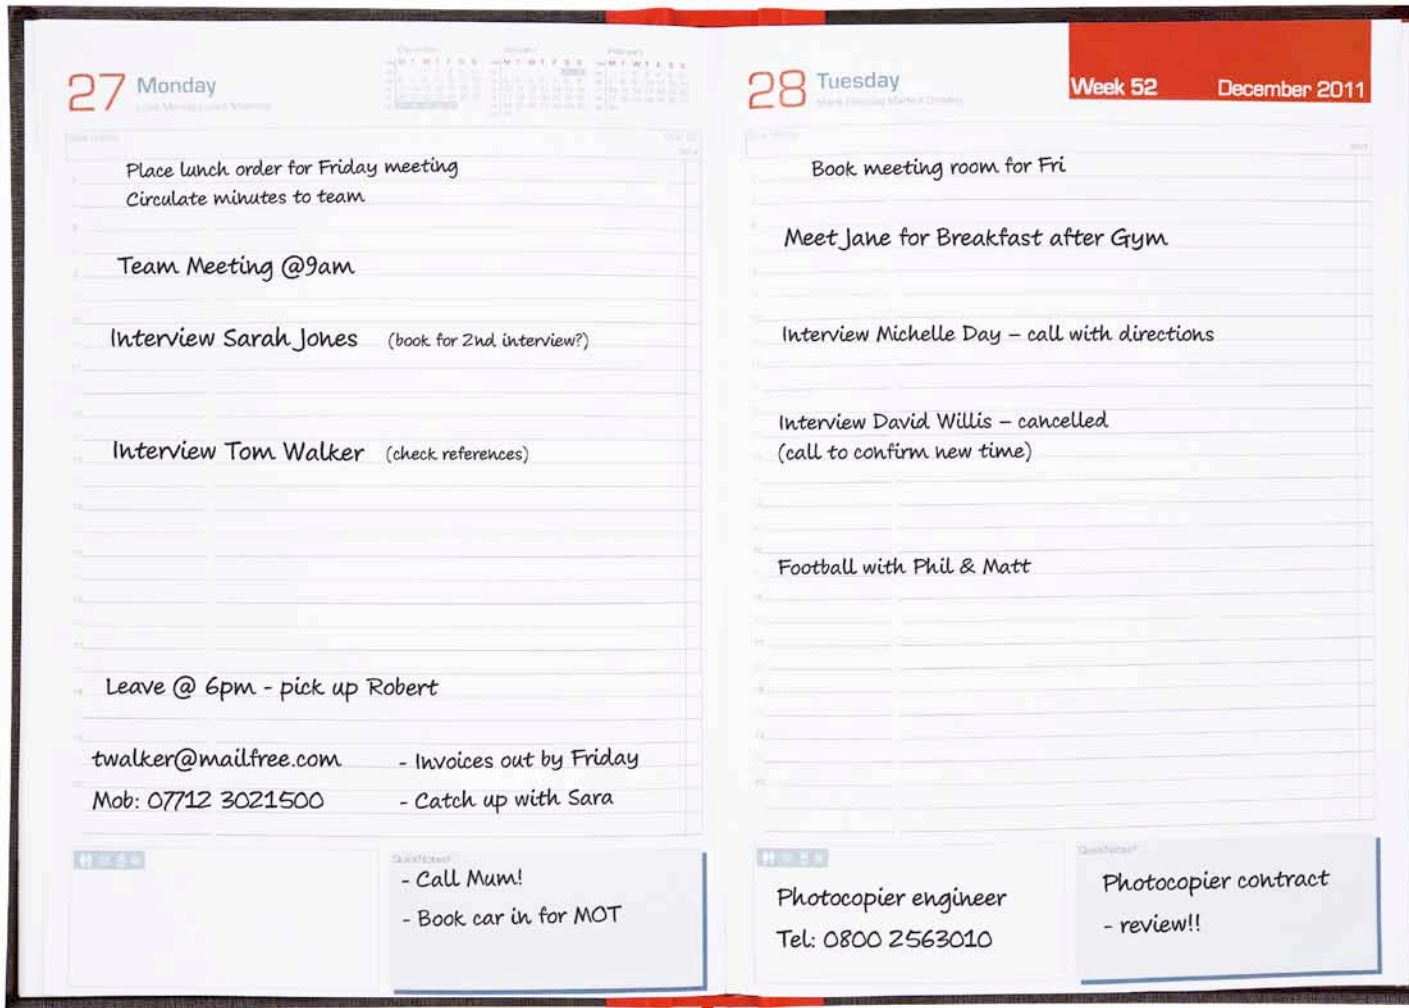 27 Monday
December January February
Place lunch order for Friday meeting
Circulate minutes to team
Team Meeting @9am
Interview Sarah Jones (book for 2nd interview?)
Interview Tom Walker (check references)
Leave @ 6pm - pick up Robert
twalker@mailfree.com - Invoices out by Friday
Mob: 07712 3021500 - Catch up with Sara
QuickNotes®
- Call Mum!
- Book car in for MOT
28 Tuesday
Week 52 December 2011
Book meeting room for Fri
Meet Jane for Breakfast after Gym
Interview Michelle Day – call with directions
Interview David Willis – cancelled
(call to confirm new time)
Football with Phil & Matt
Photocopier engineer
Tel: 0800 2563010
QuickNotes®
Photocopier contract
- review!!